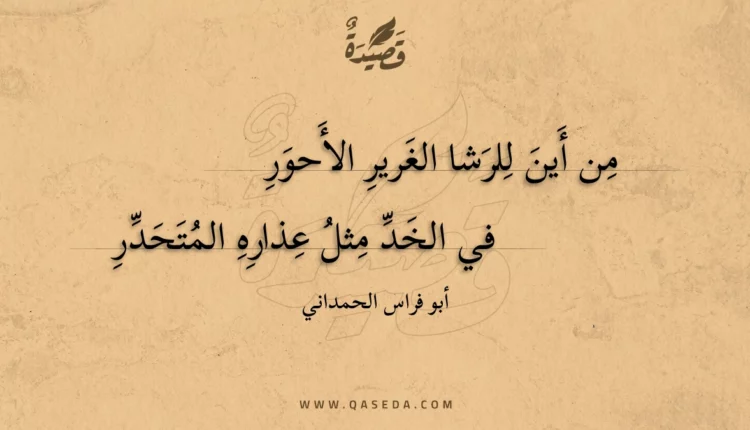 قَصِيْدَةٌ
مِن أَينَ لِلرَشا الغَريرِ الأَحوَرِ
في الخَدِّ مِثلُ عِذارِهِ المُتَحَدِّرِ
أبو فراس الحمداني
WWW.QASEDA.COM